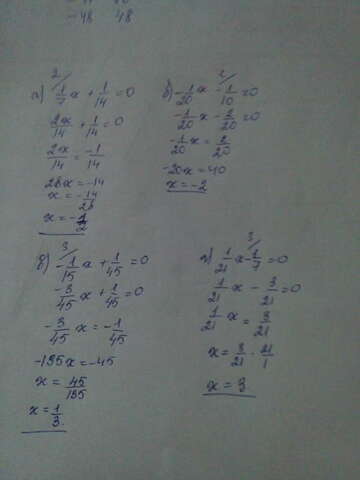 -48 48
2/
а) 1/7 x + 1/14 = 0
2x/14 + 1/14 = 0
2x/14 = -1/14
28x = -14
x = -14/28
x = -1/2
2/
б) -1/20 x - 1/10 = 0
-1/20 x - 2/20 = 0
-1/20 x = 2/20
-20x = 40
x = -2
3/
в) -1/15 x + 1/45 = 0
-3/45 x + 1/45 = 0
-3/45 x = -1/45
-135x = -45
x = 45/135
x = 1/3.
3/
г) 1/21 x - 1/7 = 0
1/21 x - 3/21 = 0
1/21 x = 3/21
x = 3/21 · 21/1
x = 3